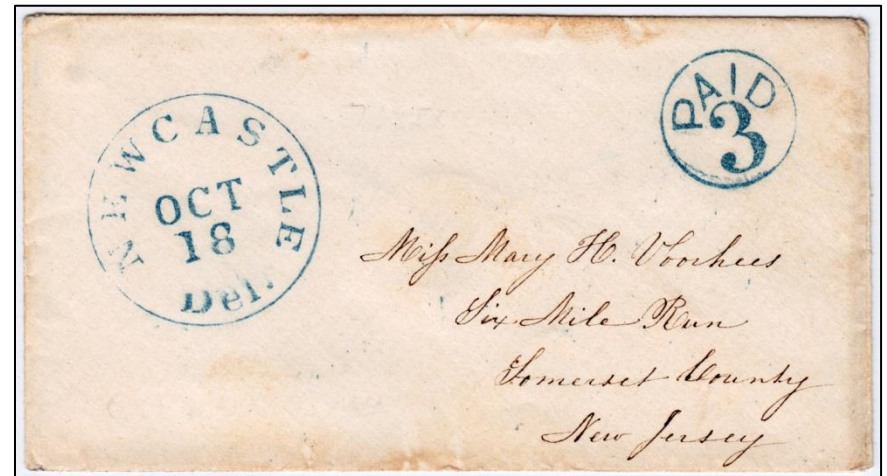 NEWCASTLE
OCT
18
Del.
PAID
3
Miss Mary H. Voorhees
Six Mile Run
Somerset County
New Jersey